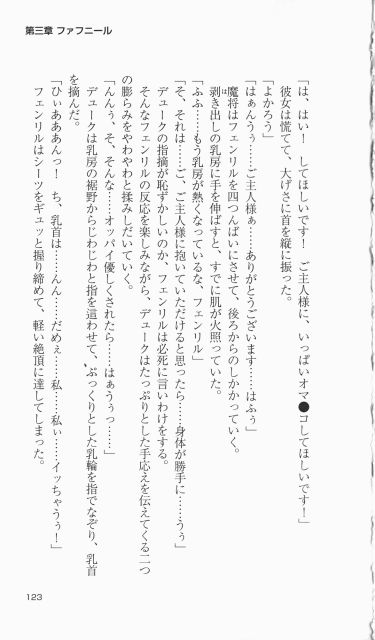 第三章 ファフニール
「は、はい！　してほしいです！　ご主人様に、いっぱいオマ●コしてほしいです！」
彼女は慌てて、大げさに首を縦に振った。
「よかろう」
「はぁんうぅ……ご主人様ぁ……ありがとうございます……はふぅ」
魔将はフェンリルを四つんばいにさせて、後ろからのしかかっていく。
剥き出しの乳房に手を伸ばすと、すでに肌が火照っていた。
「ふふ……もう乳房が熱くなっているな、フェンリル」
「そ、それは……ご、ご主人様に抱いていただけると思ったら……身体が勝手に……うぅ」
デュークの指摘が恥ずかしいのか、フェンリルは必死に言いわけをする。
そんなフェンリルの反応を楽しみながら、デュークはたっぷりとした手応えを伝えてくる二つ
の膨らみをやわやわと揉みしだいていく。
「んんぅ、そぁ、そんな……オッパイ優しくされたら……はぁうぅっ……」
デュークは乳房の裾野からじわじわと指を這わせて、ぷっくりとした乳輪を指でなぞり、乳首
を摘んだ。
「ひぃあああんっ！　ち、乳首は……んん……だめぇ……私……私ぃ……イッちゃうぅ！」
フェンリルはシーツをギュッと握り締めて、軽い絶頂に達してしまった。
123